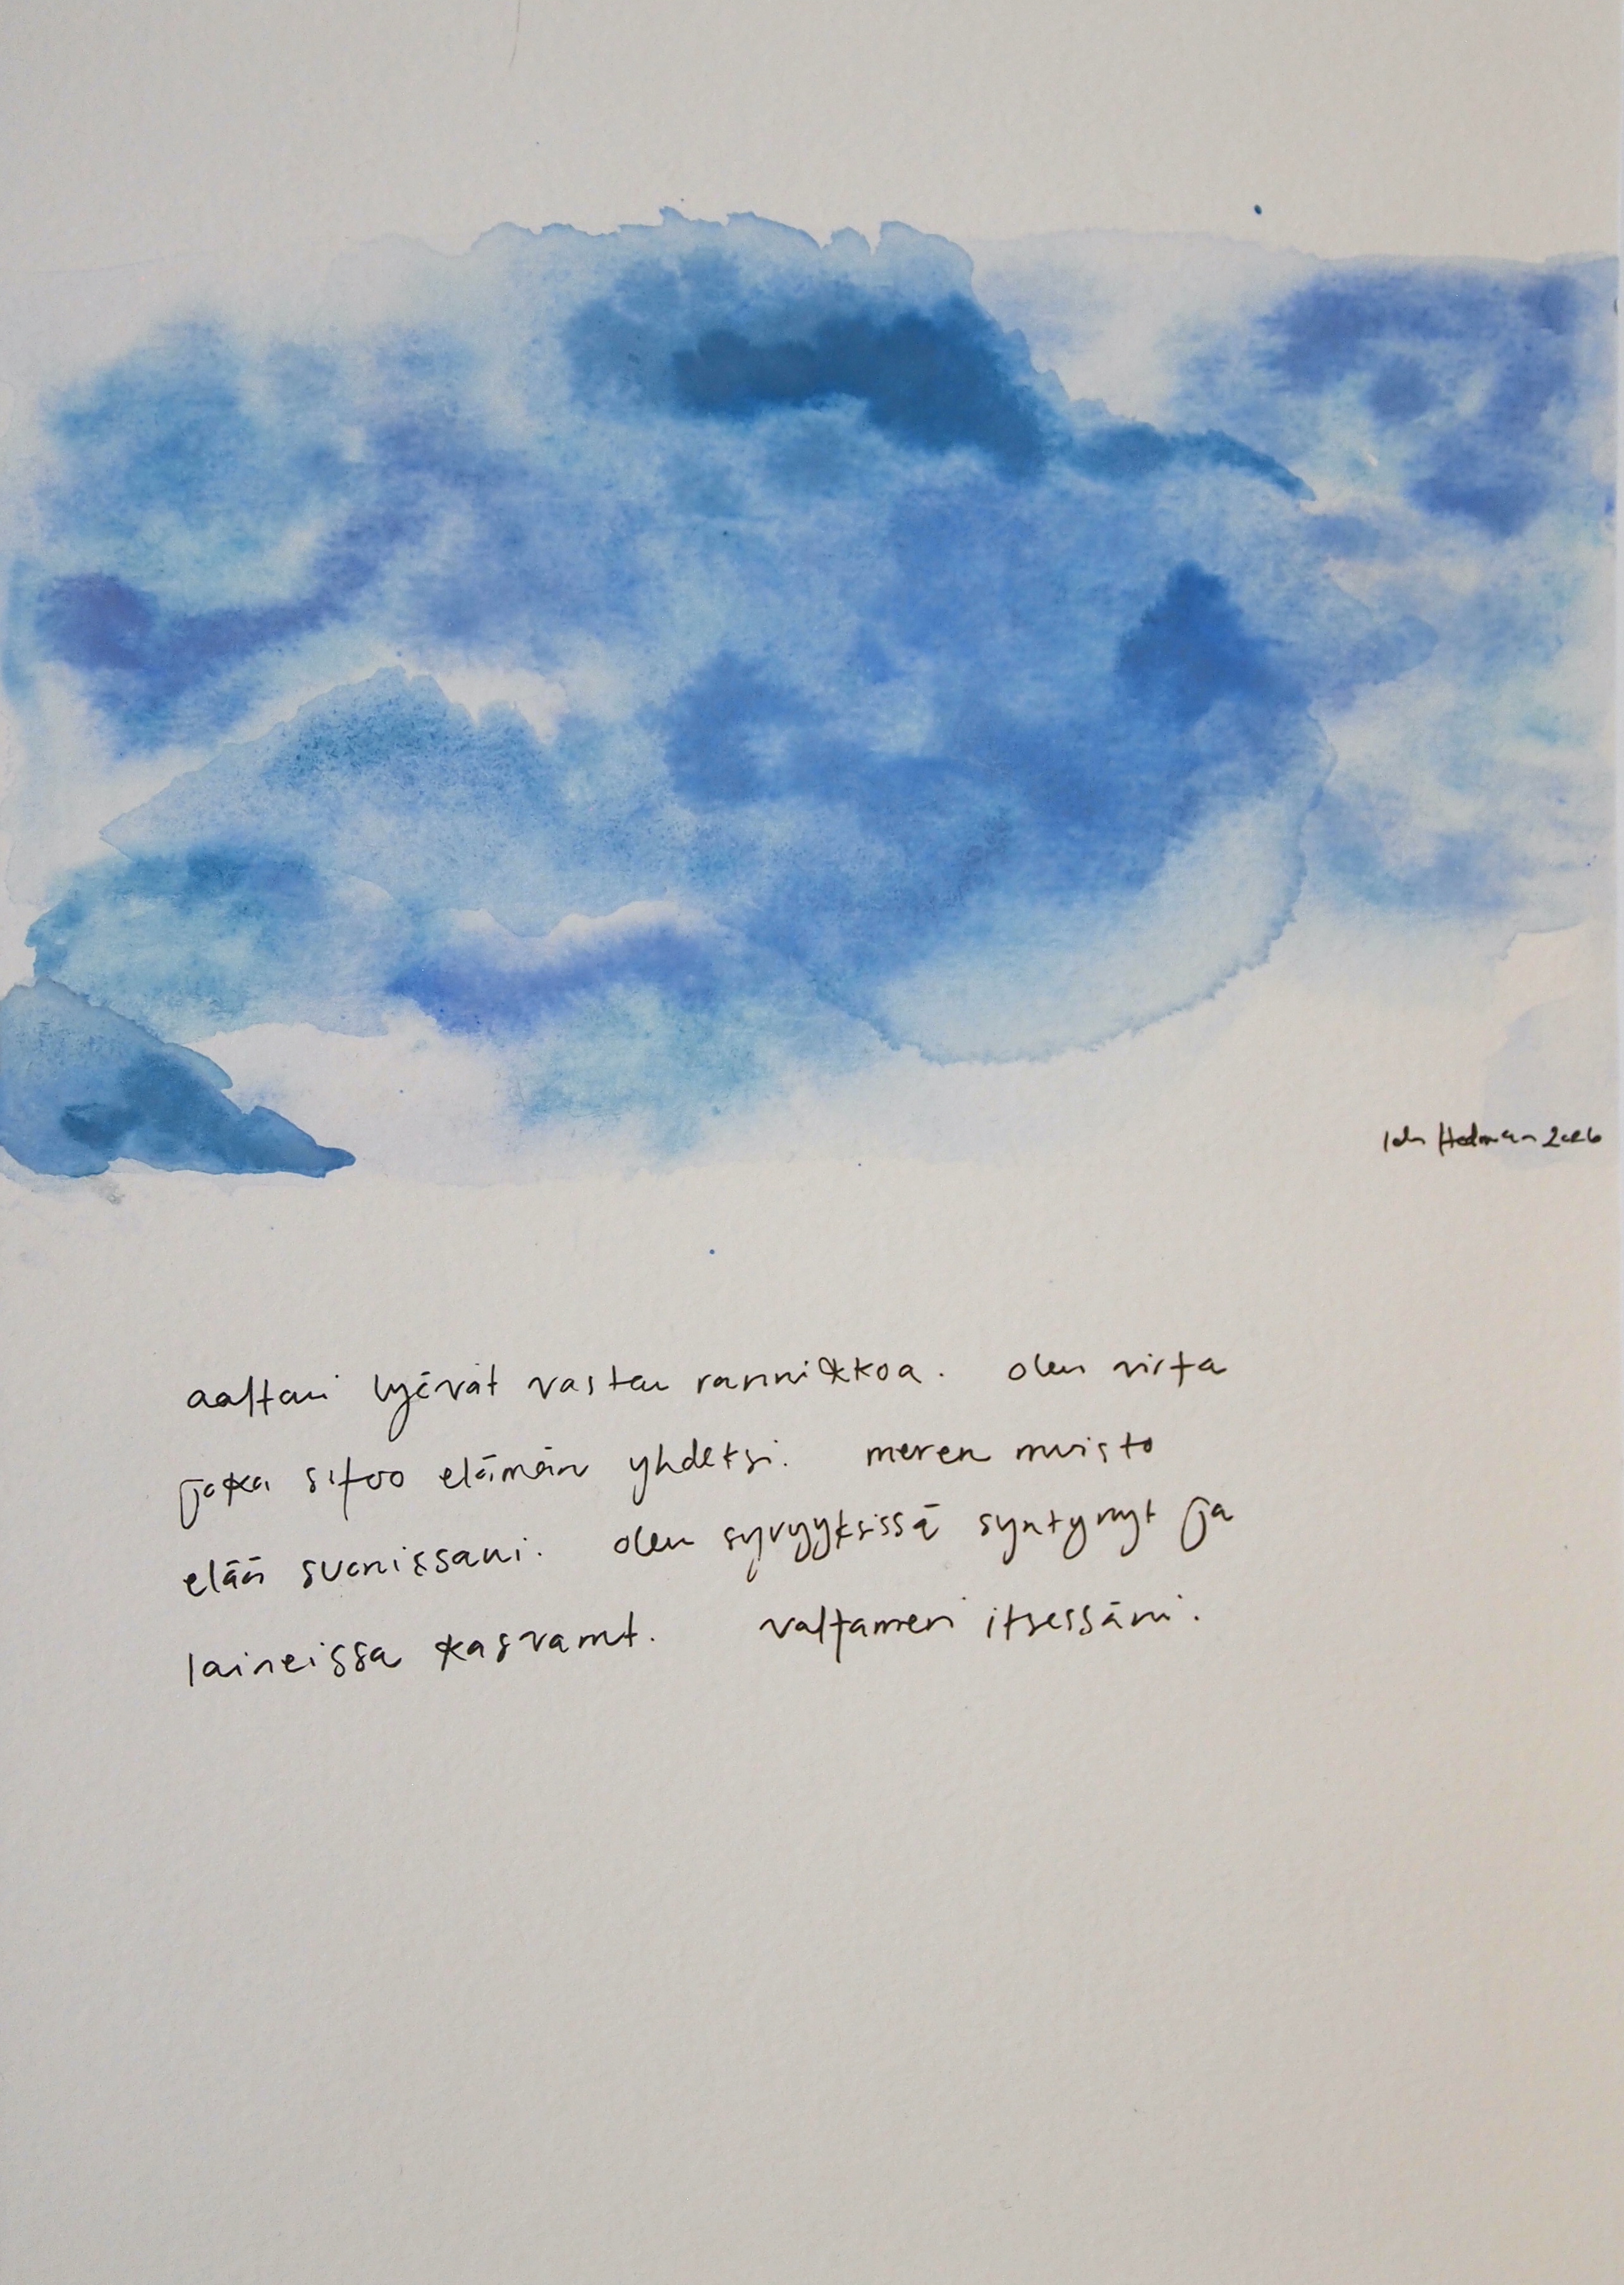 Hedman 2026
aaltoni lyövät vastau rannikkoa. olen virta
joka sitoo elämän yhdeksi. meren muisto
elää suonissani. olen syvyyksissä syntynyt ja
laineissa kasvanut. valtameri itsessäni.